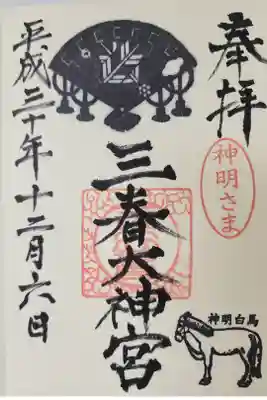 奉拝
神明さま
三春大神宮
神明白馬
平成三十年十二月六日